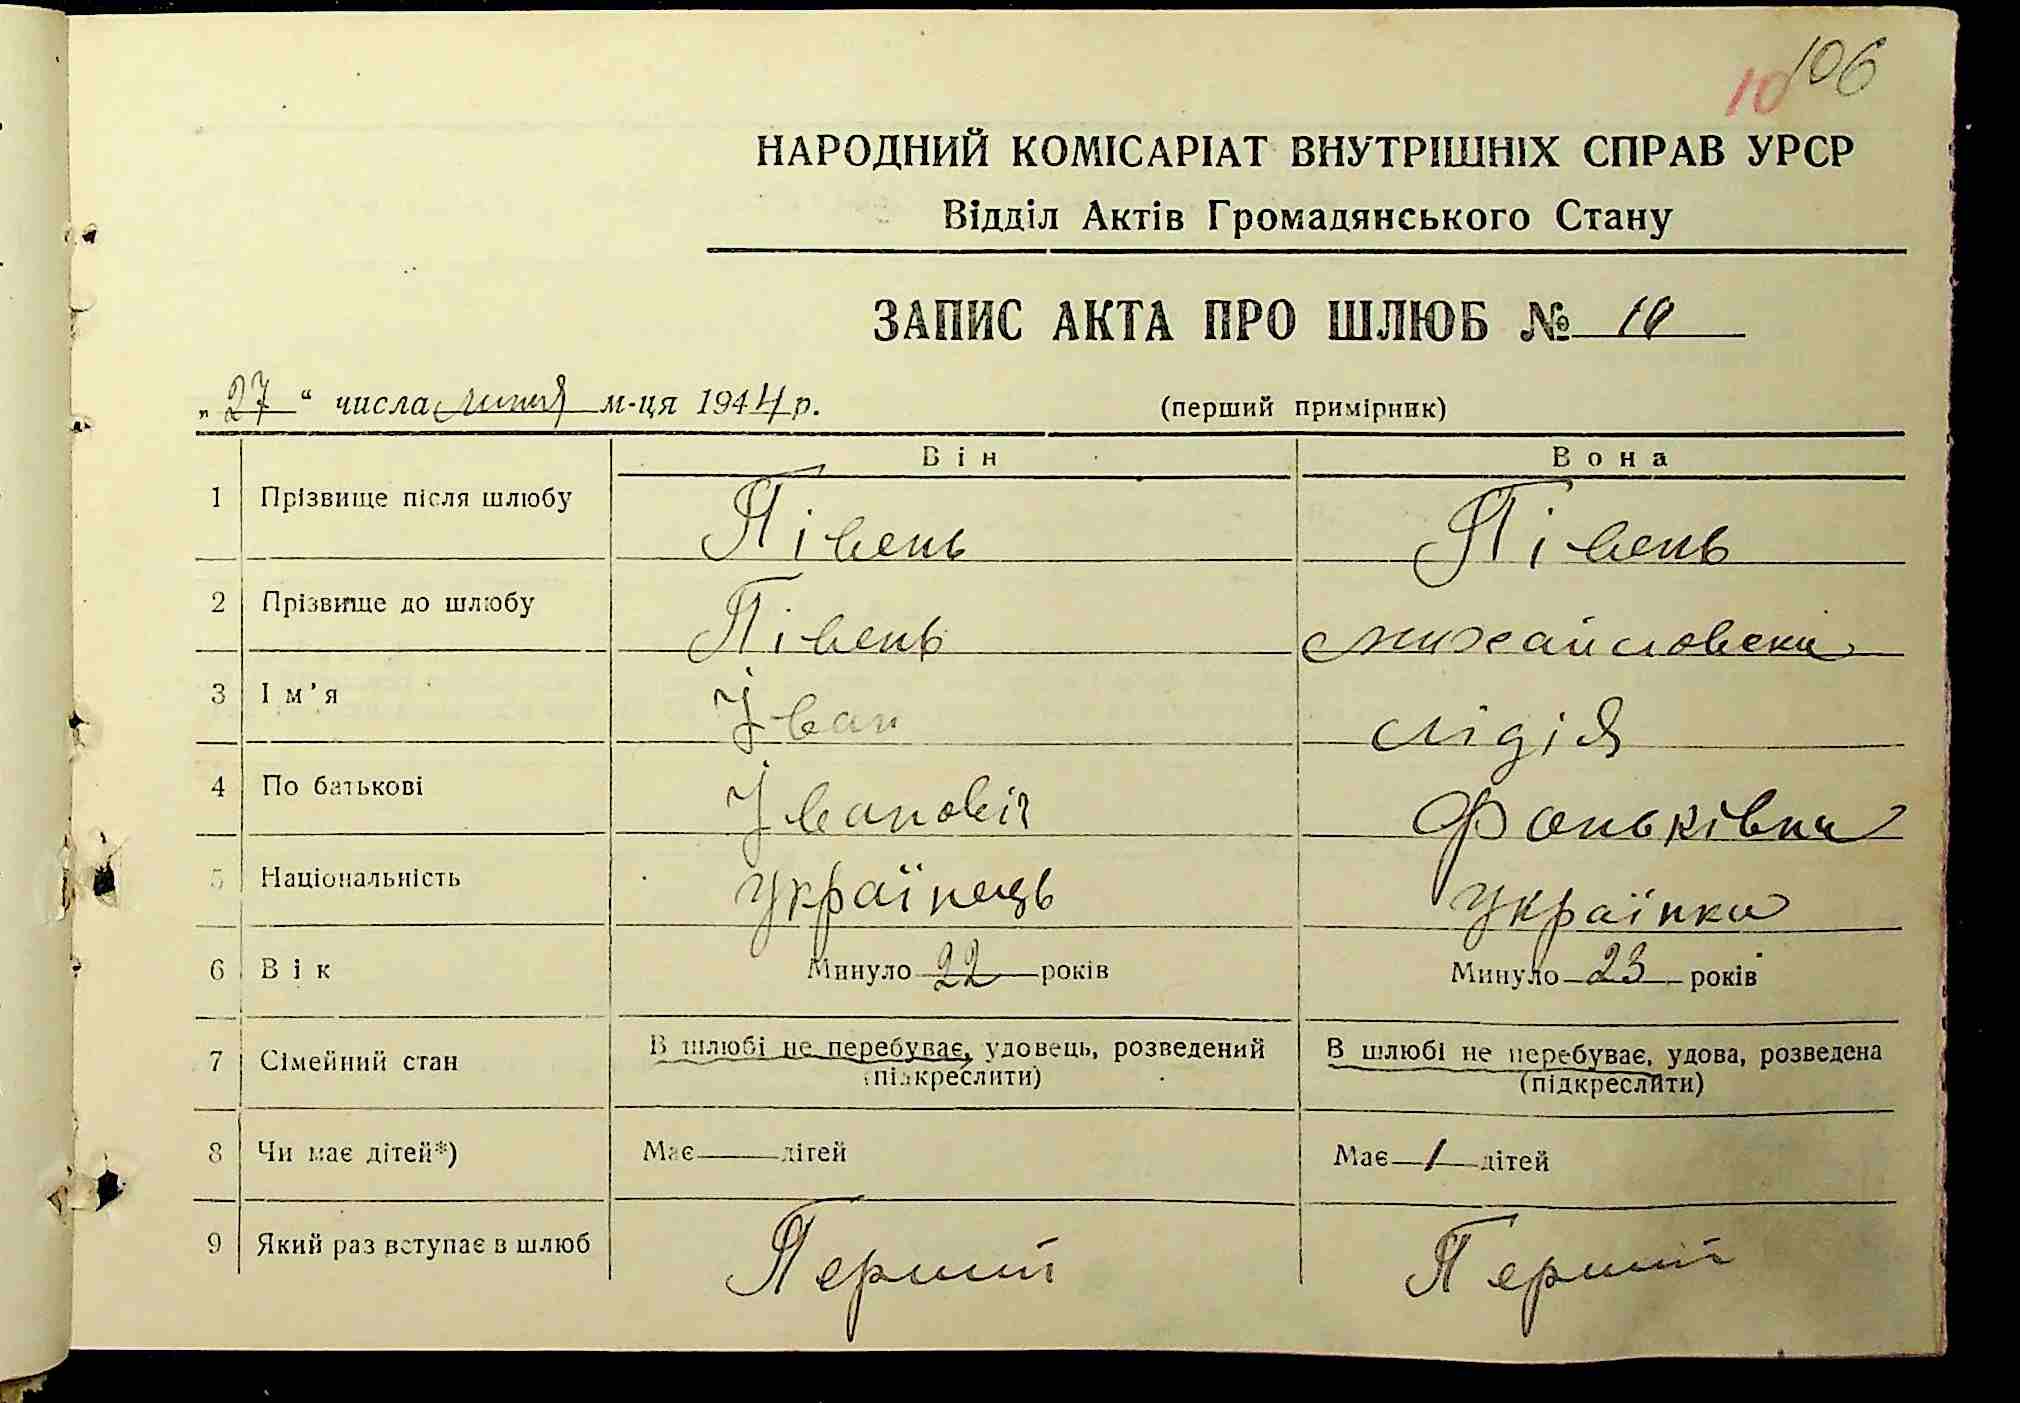 10 106
НАРОДНИЙ КОМІСАРІАТ ВНУТРІШНІХ СПРАВ УРСР
Відділ Актів Громадянського Стану
ЗАПИС АКТА ПРО ШЛЮБ № 10
„27“ числа липня м-ця 1944 р. (перший примірник)
Він Вона
1 Прізвище після шлюбу Півень Півень
2 Прізвище до шлюбу Півень Михайловська
3 Ім’я Іван Лідія
4 По батькові Івановіч Фоньківна
5 Національність Українець Українка
6 Вік Минуло 22 років Минуло 23 років
7 Сімейний стан В шлюбі не перебуває, удовець, розведений В шлюбі не перебуває, удова, розведена
(підкреслити) (підкреслити)
8 Чи має дітей*) Має — дітей Має 1 дітей
9 Який раз вступає в шлюб Перший Перший